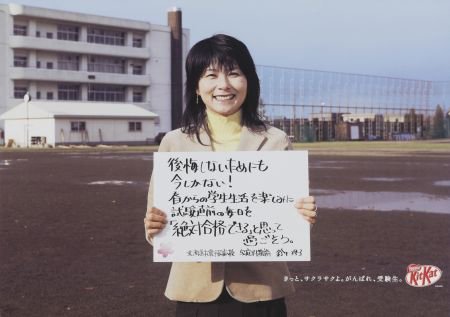 後悔しないためにも
今しかない!
春からの学生生活を楽しみに
試験直前の毎日を
「絶対合格できる」と思って
過ごそう。
きっと、サクラサクよ。がんばれ、受験生。
Nestlé
KitKat